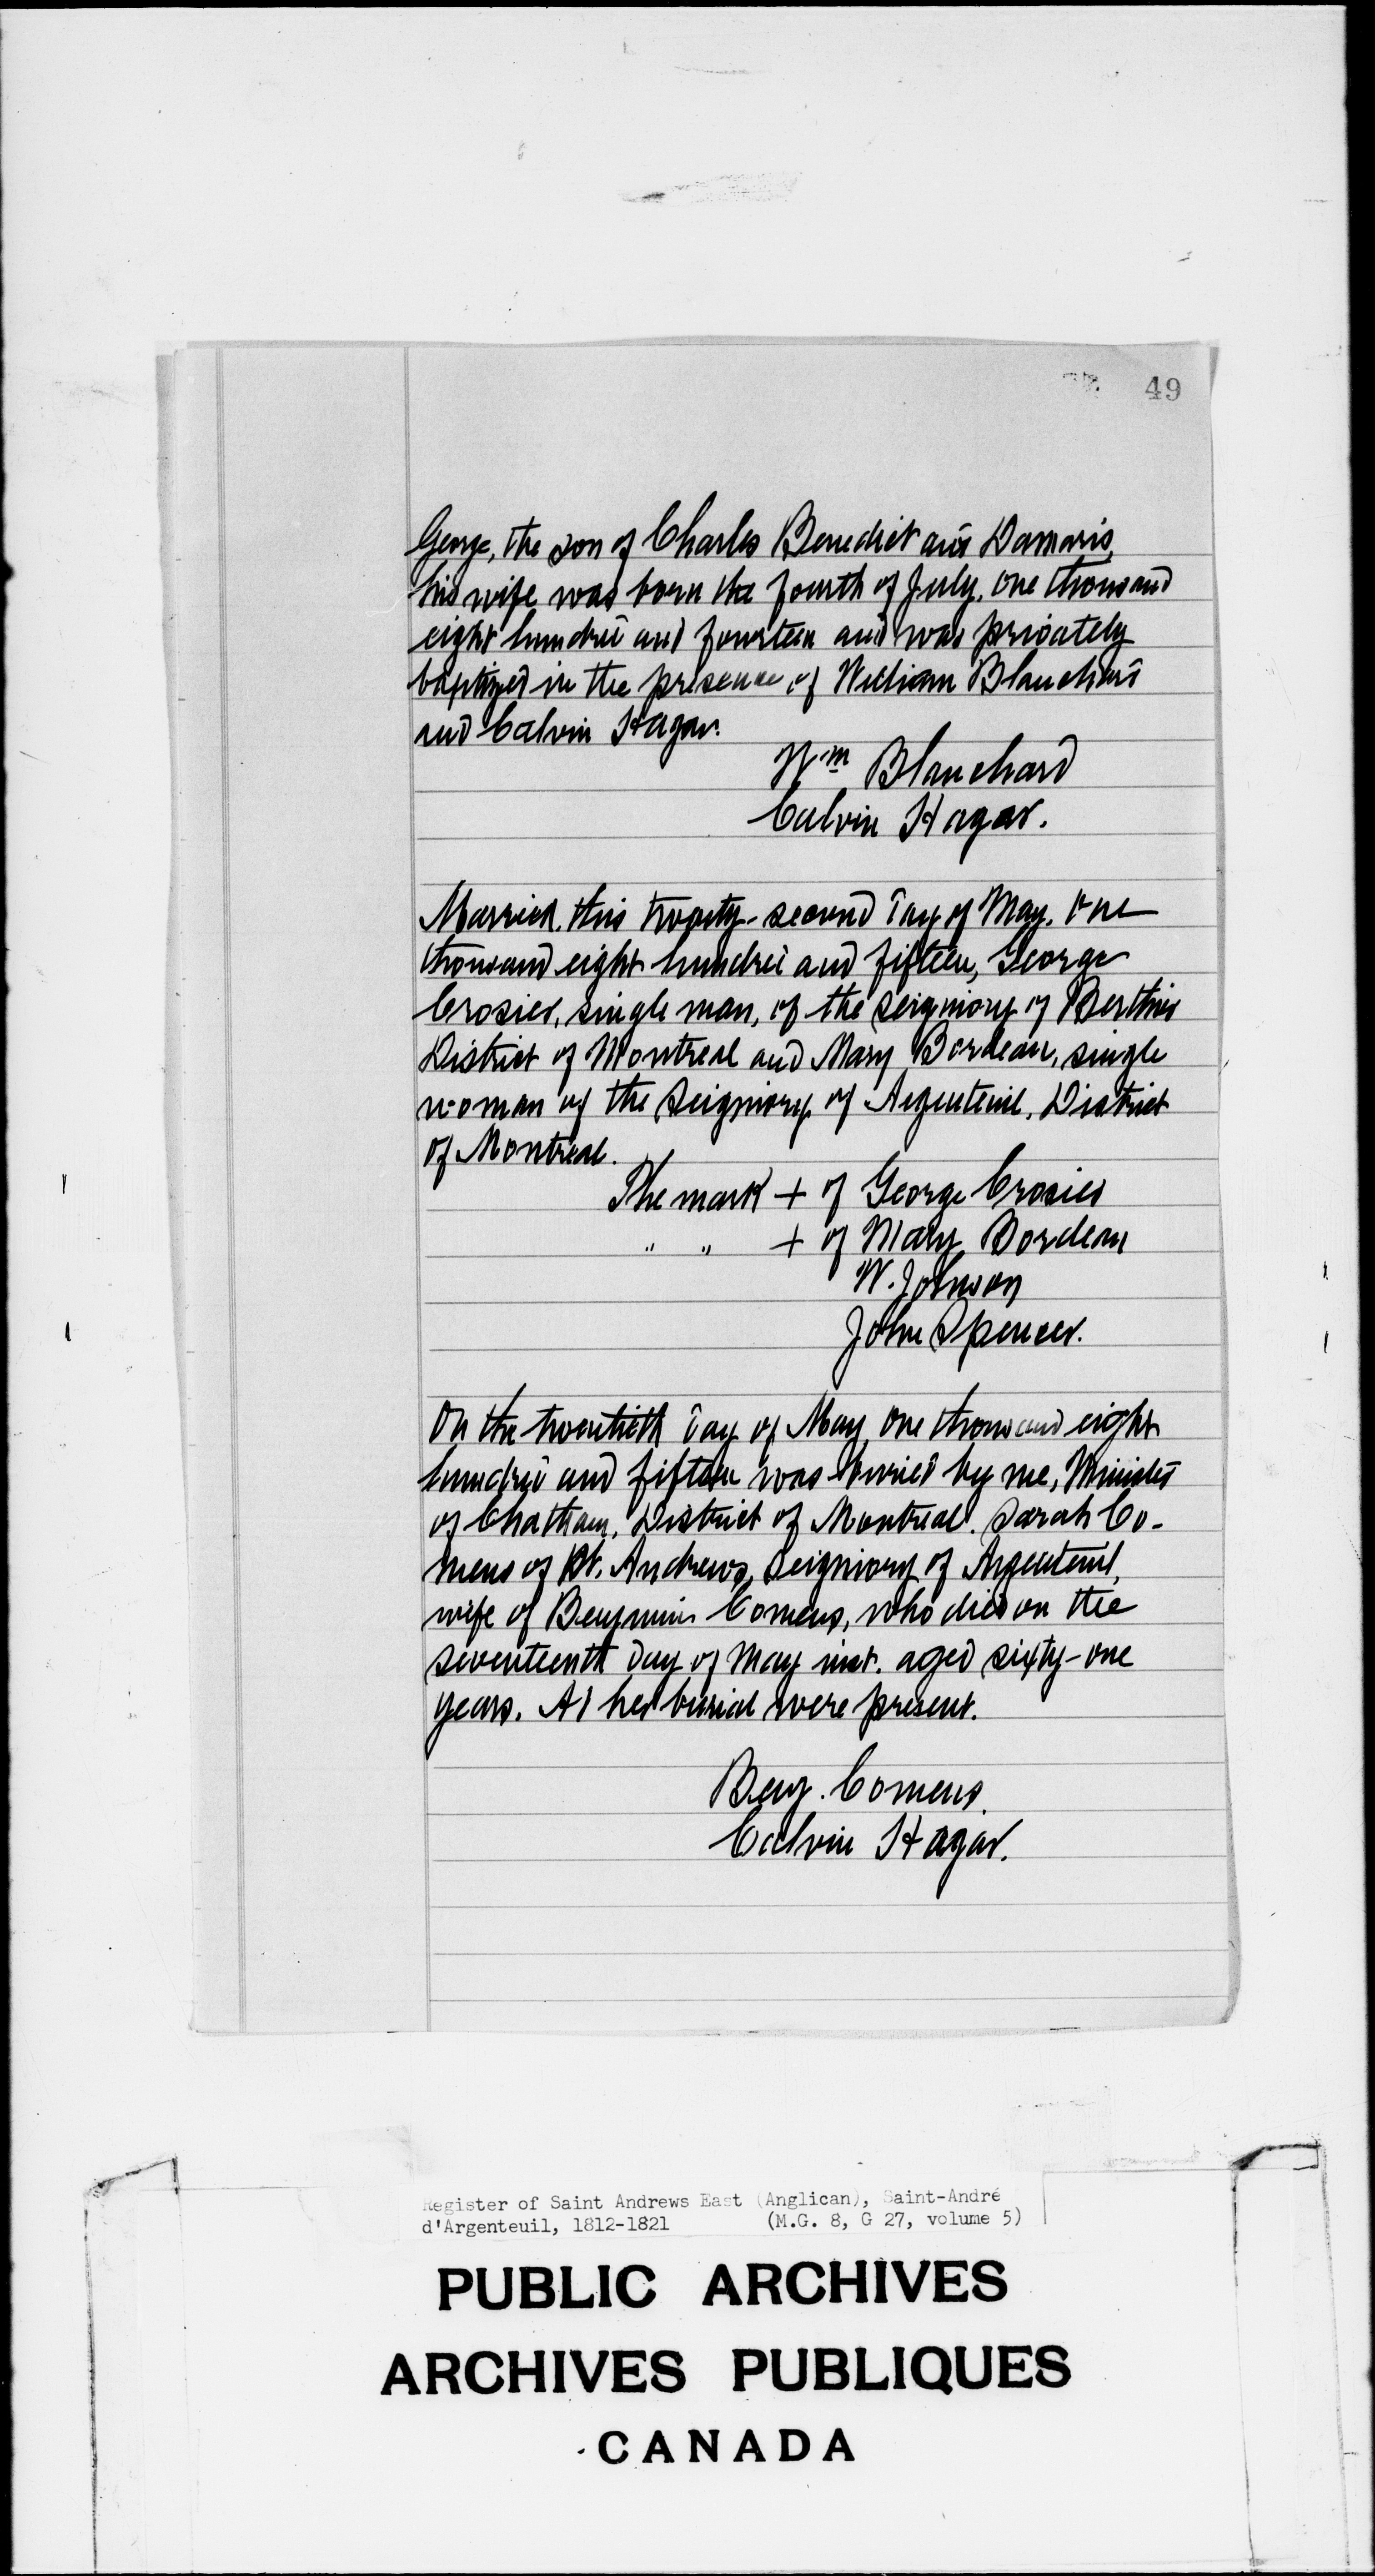 49
George, the son of Charles Benedict and Damaris,
his wife was born the fourth of July, one thousand
eight hundred and fourteen and was privately
baptized in the presence of William Blanchard
and Calvin Hagar.
Wm Blanchard
Calvin Hagar.
Married, this twenty-second day of May, one
thousand eight hundred and fifteen, George
Crosier, single man, of the seigniory of Berthier
District of Montreal and Mary Bordeau, single
woman of the seigniory of Argenteuil, District
of Montreal.
The mark + of George Crosier
" " + of Mary Bordeau
W. Johnson
John Spencer.
On the twentieth day of May, one thousand eight
hundred and fifteen was buried by me, Minister
of Chatham, District of Montreal, Sarah Co-
mens of St. Andrews, seigniory of Argenteuil,
wife of Benjamin Comens, who died on the
seventeenth day of May inst. aged sixty-one
years. At her burial were present.
Benj. Comens.
Calvin Hagar.
Register of Saint Andrews East (Anglican), Saint-André
d'Argenteuil, 1812-1821 (M.G. 8, G 27, volume 5)
PUBLIC ARCHIVES
ARCHIVES PUBLIQUES
CANADA